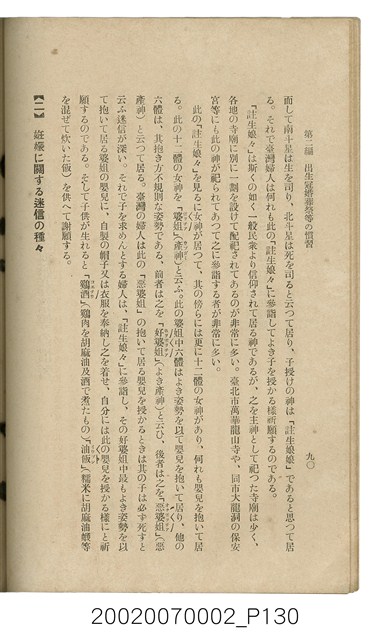 第二編　出生冠婚葬祭等の慣習
九〇
而して南斗星は生を司り、北斗星は死を司ると云つて居り、子授けの神は「註生娘々」であると思つて居
る。それで臺灣婦人は何れも此の「註生娘々」に參詣してよき子を授かる樣祈願するのである。
「註生娘々」は斯くの如く一般民衆より信仰されて居る神であるが、之を主神として祀つた寺廟は少く、
各地の寺廟に別に一劃を設けて配祀されてあるのが非常に多い。臺北市萬華龍山寺や、同市大龍洞の保安
宮等にも此の神が祀られてあつて之に參詣する者が非常に多い。
此の「註生娘々」を見るに女神が居つて、其の傍らには更に十二體の女神があり、何れも嬰兒を抱いて居
る。此の十二體の女神を「婆姐」(產神)と云ふ。此の婆姐中六體はよき姿勢を以て嬰兒を抱いて居り、他の
六體は、其抱き方不規則な姿勢である、前者は之を「好婆姐」(よき產神)と云ひ、後者は之を「惡婆姐」(惡
產神)と云つて居る。臺灣の婦人は此の「惡婆姐」の抱いて居る嬰兒を授かるときは其の子は必ず死すと
云ふ迷信が深い。それで子を求めんとする婦人は、「註生娘々」に參詣し、その好婆姐中最もよき姿勢を以
て抱いて居る婆姐の嬰兒に、自製の帽子又は衣服を奉納し之を着せ、自分には此の嬰兒を授かる樣にと祈
願するのである。そして子供が生れると「鷄酒」(鷄肉を胡麻油及酒で煮たもの)「油飯」(糯米に胡麻油蝦等
を混ぜて炊いた飯)を供へて謝願する。
【二】　姙娠に關する迷信の種々
20020070002_P130